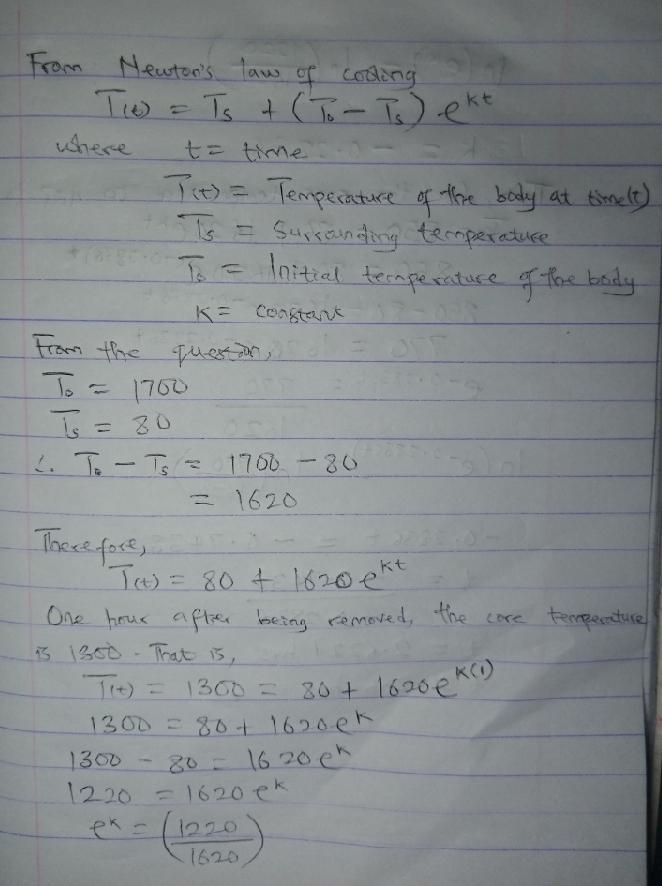 From Newton's law of cooling
T(t) = Ts + (To - Ts) e^kt
where t = time
T(t) = Temperature of the body at time(t)
Ts = Surrounding temperature
To = Initial temperature of the body
K = constant
From the question,
To = 1700
Ts = 80
∴ To - Ts = 1700 - 80
= 1620
Therefore,
T(t) = 80 + 1620 e^kt
One hour after being removed, the core temperature
is 1300. That is,
T(t) = 1300 = 80 + 1620 e^k(1)
1300 = 80 + 1620 e^k
1300 - 80 = 1620 e^k
1220 = 1620 e^k
e^k = (1220/1620)